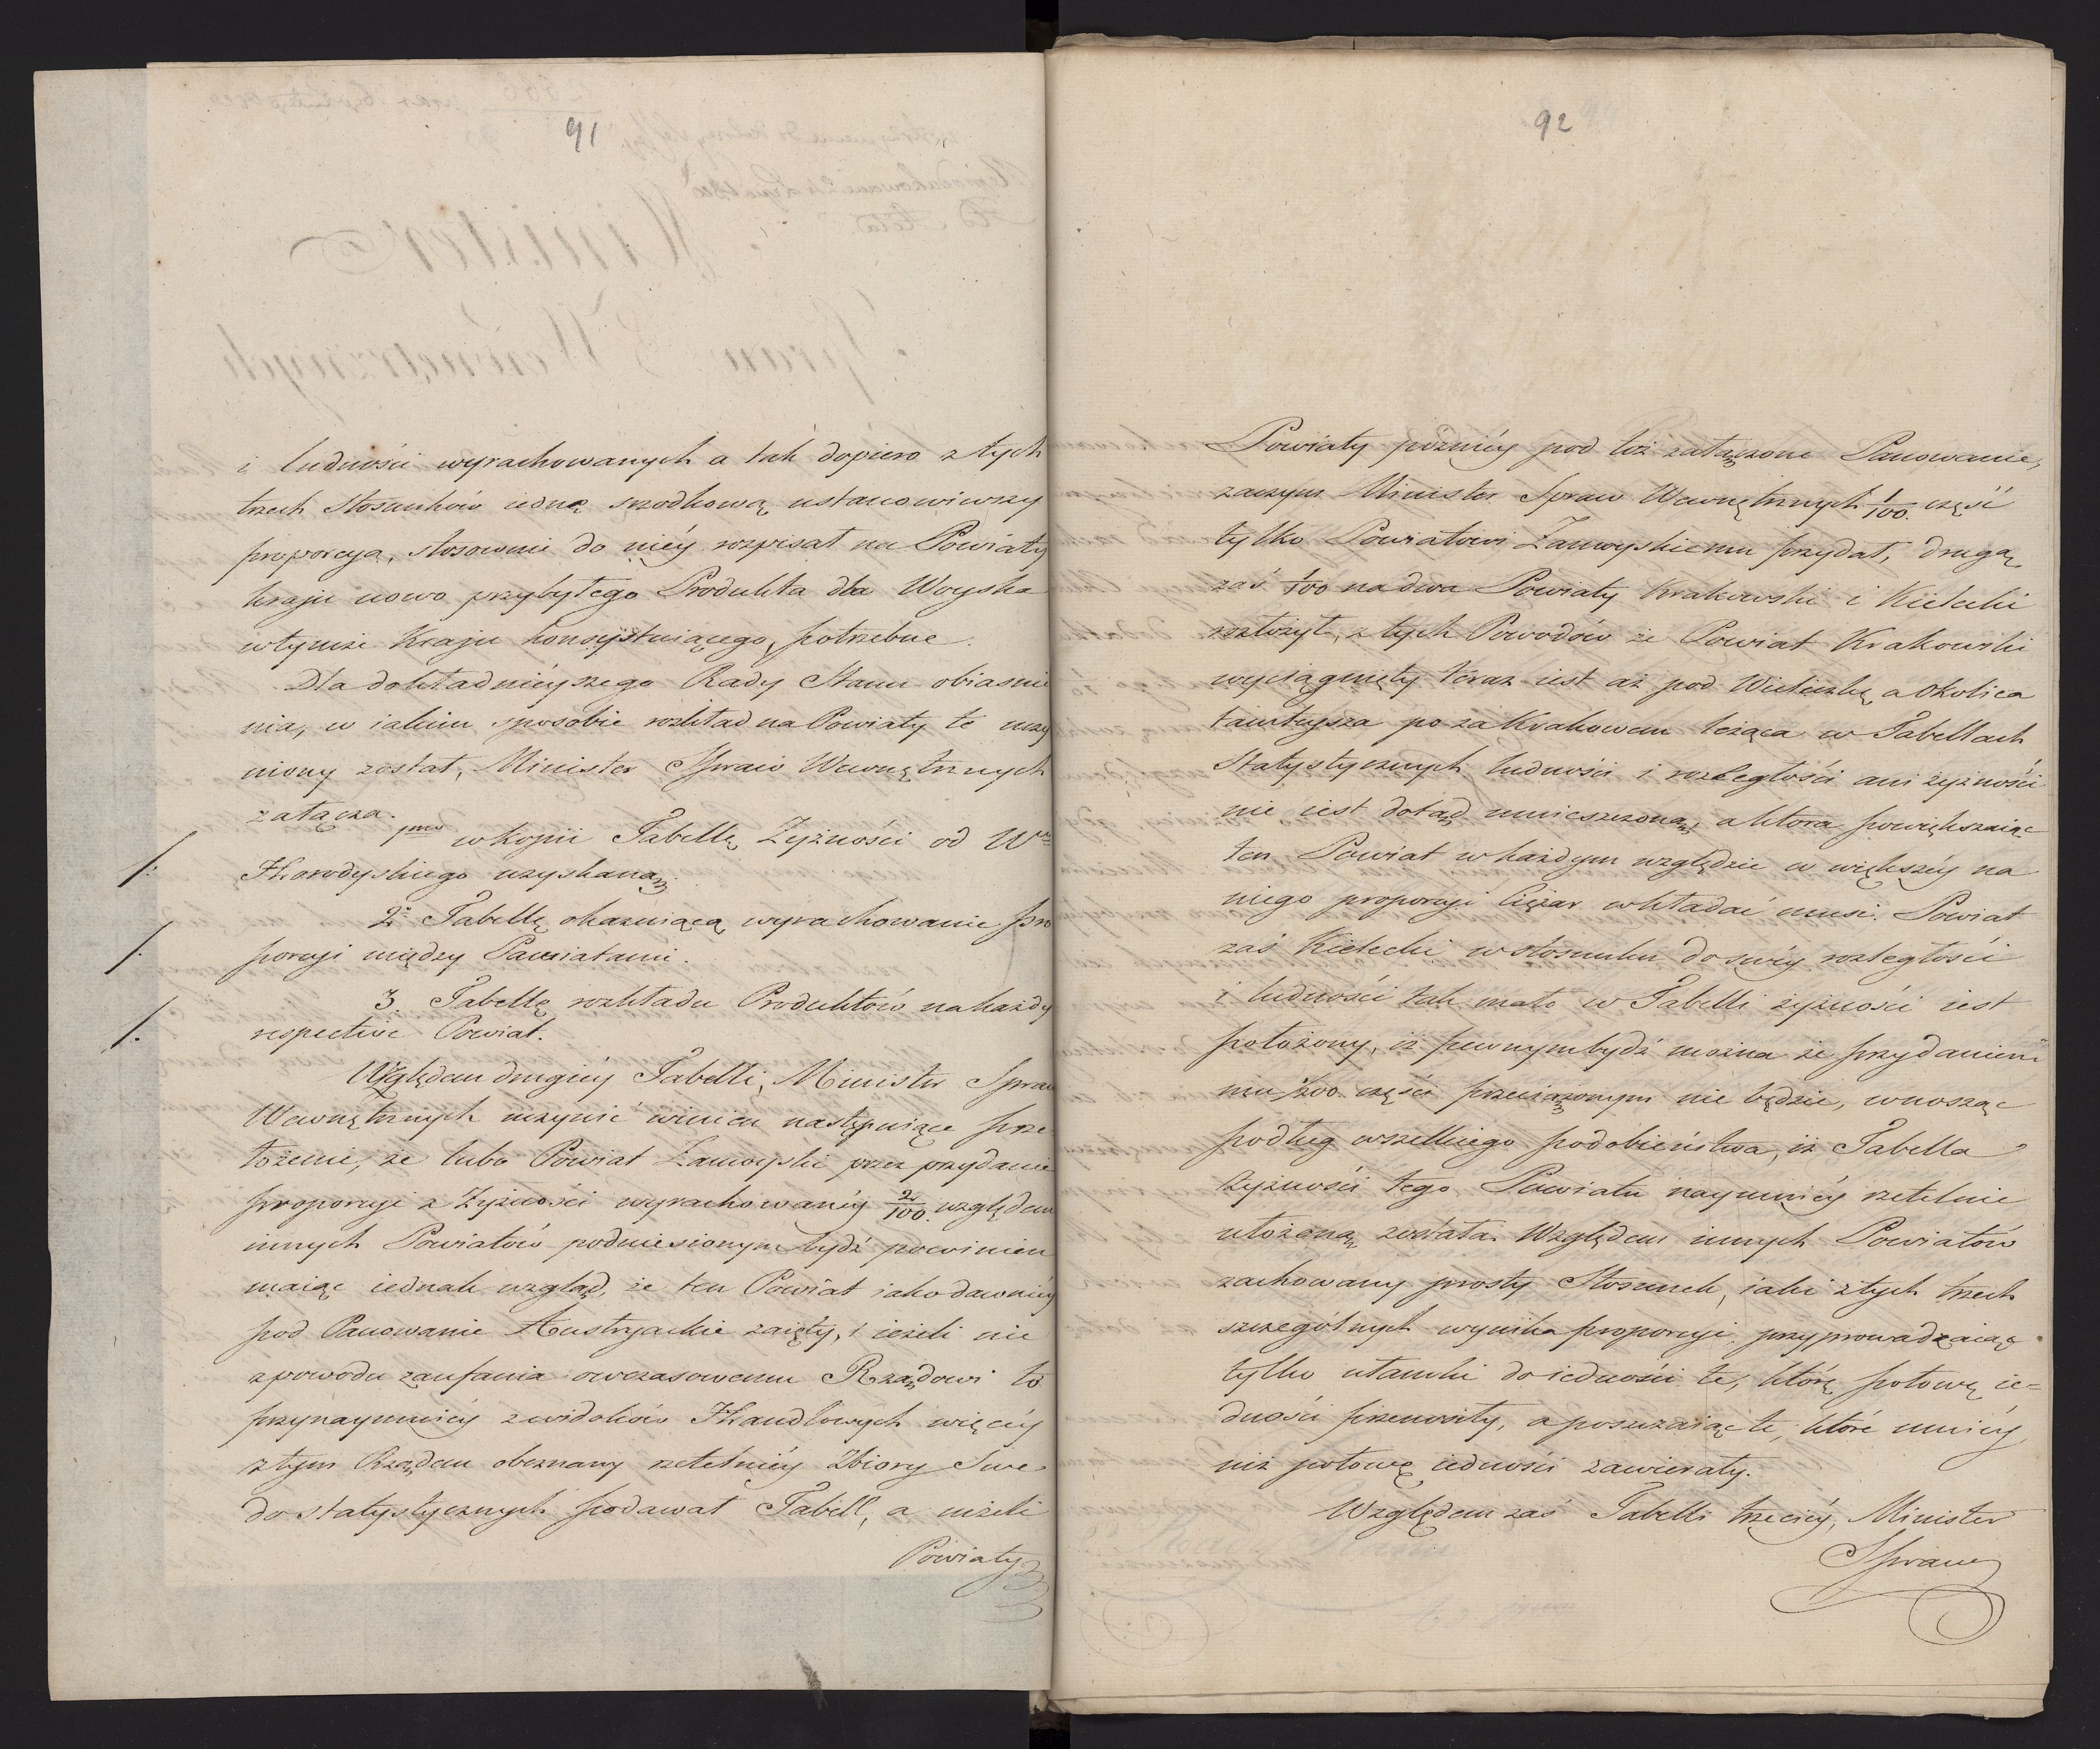 91
i ludności wyrachowanych a tak dopiero z tych
trzech Stosunków iedną srzodkową ustanowiwszy
proporcyą, stosownie do niéy rozpisał na Powiaty
kraju nowo przybyłego Produkta dla Woyska
w tymże Kraju konsystuiącego, potrzebne.
Dla dokładnieyszego Rady Stanu obiasnie
nia, w iakim sposobie rozkład na Powiaty te uczy
niony został, Minister Spraw Wewnętrznych
załącza.
1mo w kopii Tabellę Zyżności od W
Horodyskiego uzyskaną.
/.
2o Tabellę okazuiącą wyrachowanie pro
porcyi między Powiatami.
/.
3. Tabellę rozkładu Produktów na każdy
respective Powiat.
/.
Względem drugiéy Tabelli, Minister Spraw
Wewnętrznych uczynić winien następuiące prze
łożenie, że lubo Powiat Zamoyski przez przydanie
proporcyi z Zyżności wyrachowanéy 2/100. względem
innych Powiatów podniesionym bydź powinien
maiąc iednak wzgląd, że ten Powiat iako dawniéy
pod Panowanie Austryackie zaięty, i ieżeli nie
z powodu zaufania owczasowemu Rządowi to
przynaymniéy z widoków Handlowych więcéy
z tym Rządem obeznany rzetelniéy Zbiory Swe
do statystycznych podawał Tabell, a niżeli
Powiaty
92
Powiaty późniéy pod toż załączone Panowanie,
zaczym Minister Spraw Wewnętrznych 1/100. część
tylko Powiatowi Zamoyskiemu przydał, drugą
zaś 1/100 na dwa Powiaty Krakowski i Kielecki
rozłożył, z tych Powodów że Powiat Krakowski
wyciągnięty teraz iest aż pod Wieliczkę a okolica
tamteysza po za Krakowem leżąca w Tabellach
Statystycznych ludności i rozległości ani żyżności
nie iest dotąd umieszczoną, a która powiększaiąc
ten Powiat w każdym względzie w większéy na
niego proporcyi Ciężar wkładać musi. Powiat
zaś Kielecki w stosunku do swéy rozległości
i ludności tak mało w Tabelli żyżności iest
położony, iż pewnym bydź można że przydaniem
mu 1/200 części przeciążonym nie będzie, wnosząc
podług wszelkiego podobieństwa, iż Tabella
żyżności tego Powiatu naymniéy rzetelnie
ułożoną została. Względem innych Powiatów
zachowany prosty Stosunek, iaki z tych trzech
szczególnych wynika proporcyi przyprowadzaiąc
tylko ułamki do iedności te, które połowę ie=
dności przenosiły, a poszczaiąc te, które mniéy
niż połowę iedności zawierały.
Względem zaś Tabelli trzeciéy, Minister
Spraw